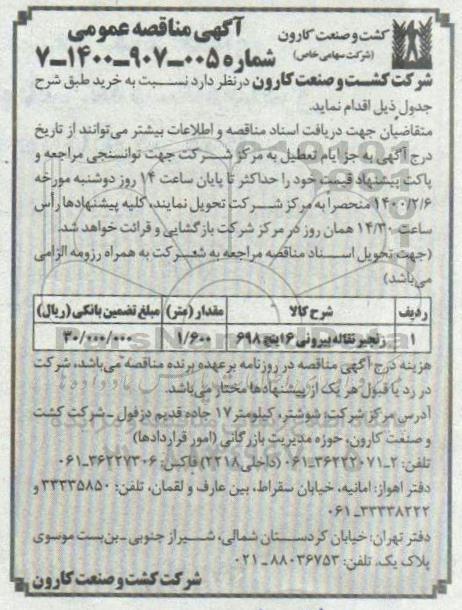 کشت و صنعت کارون
(شرکت سهامی خاص)
آگهی مناقصه عمومی
شماره ۰۰۵-۹۰۷-۱۴۰۰-۷
شرکت کشت و صنعت کارون درنظر دارد نسبت به خرید طبق شرح
جدول ذیل اقدام نماید.
متقاضیان جهت دریافت اسناد مناقصه و اطلاعات بیشتر می‌توانند از تاریخ
درج آگهی به جز ایام تعطیل به مرکز شرکت جهت توانسنجی مراجعه و
پاکت پیشنهاد قیمت خود را حداکثر تا پایان ساعت ۱۴ روز دوشنبه مورخه
۱۴۰۰/۲/۶ منحصراً به مرکز شرکت تحویل نمایند، کلیه پیشنهادها رأس
ساعت ۱۴/۳۰ همان روز در مرکز شرکت بازگشایی و قرائت خواهد شد.
(جهت تحویل اسناد مناقصه مراجعه به شعرکت به همراه رزومه الزامی
می‌باشد)
ردیف شرح کالا مقدار (متر) مبلغ تضمین بانکی (ریال)
۱ زنجیر نقاله بیرونی ۶ اینچ ۶۹۸ ۱/۶۰۰ ۳۰/۰۰۰/۰۰۰
هزینه درج آگهی مناقصه در روزنامه برعهده برنده مناقصه می‌باشد، شرکت
در رد یا قبول هر یک از پیشنهادها مختار می‌باشد.
آدرس مرکز شرکت: شوشتر، کیلومتر ۱۷ جاده قدیم دزفول - شرکت کشت
و صنعت کارون، حوزه مدیریت بازرگانی (امور قراردادها)
تلفن: ۲-۳۶۲۲۲۰۷۱-۰۶۱ (داخلی ۲۲۱۸) فاکس: ۳۶۲۲۷۳۰۶-۰۶۱
دفتر اهواز: امانیه، خیابان سقراط، بین عارف و لقمان، تلفن: ۳۳۳۳۵۸۵۰ و
۳۳۳۳۸۲۲۲-۰۶۱
دفتر تهران: خیابان کردستان شمالی، شیراز جنوبی - بن‌بست موسوی
پلاک یک، تلفن: ۸۸۰۳۶۷۵۳-۰۲۱
شرکت کشت و صنعت کارون